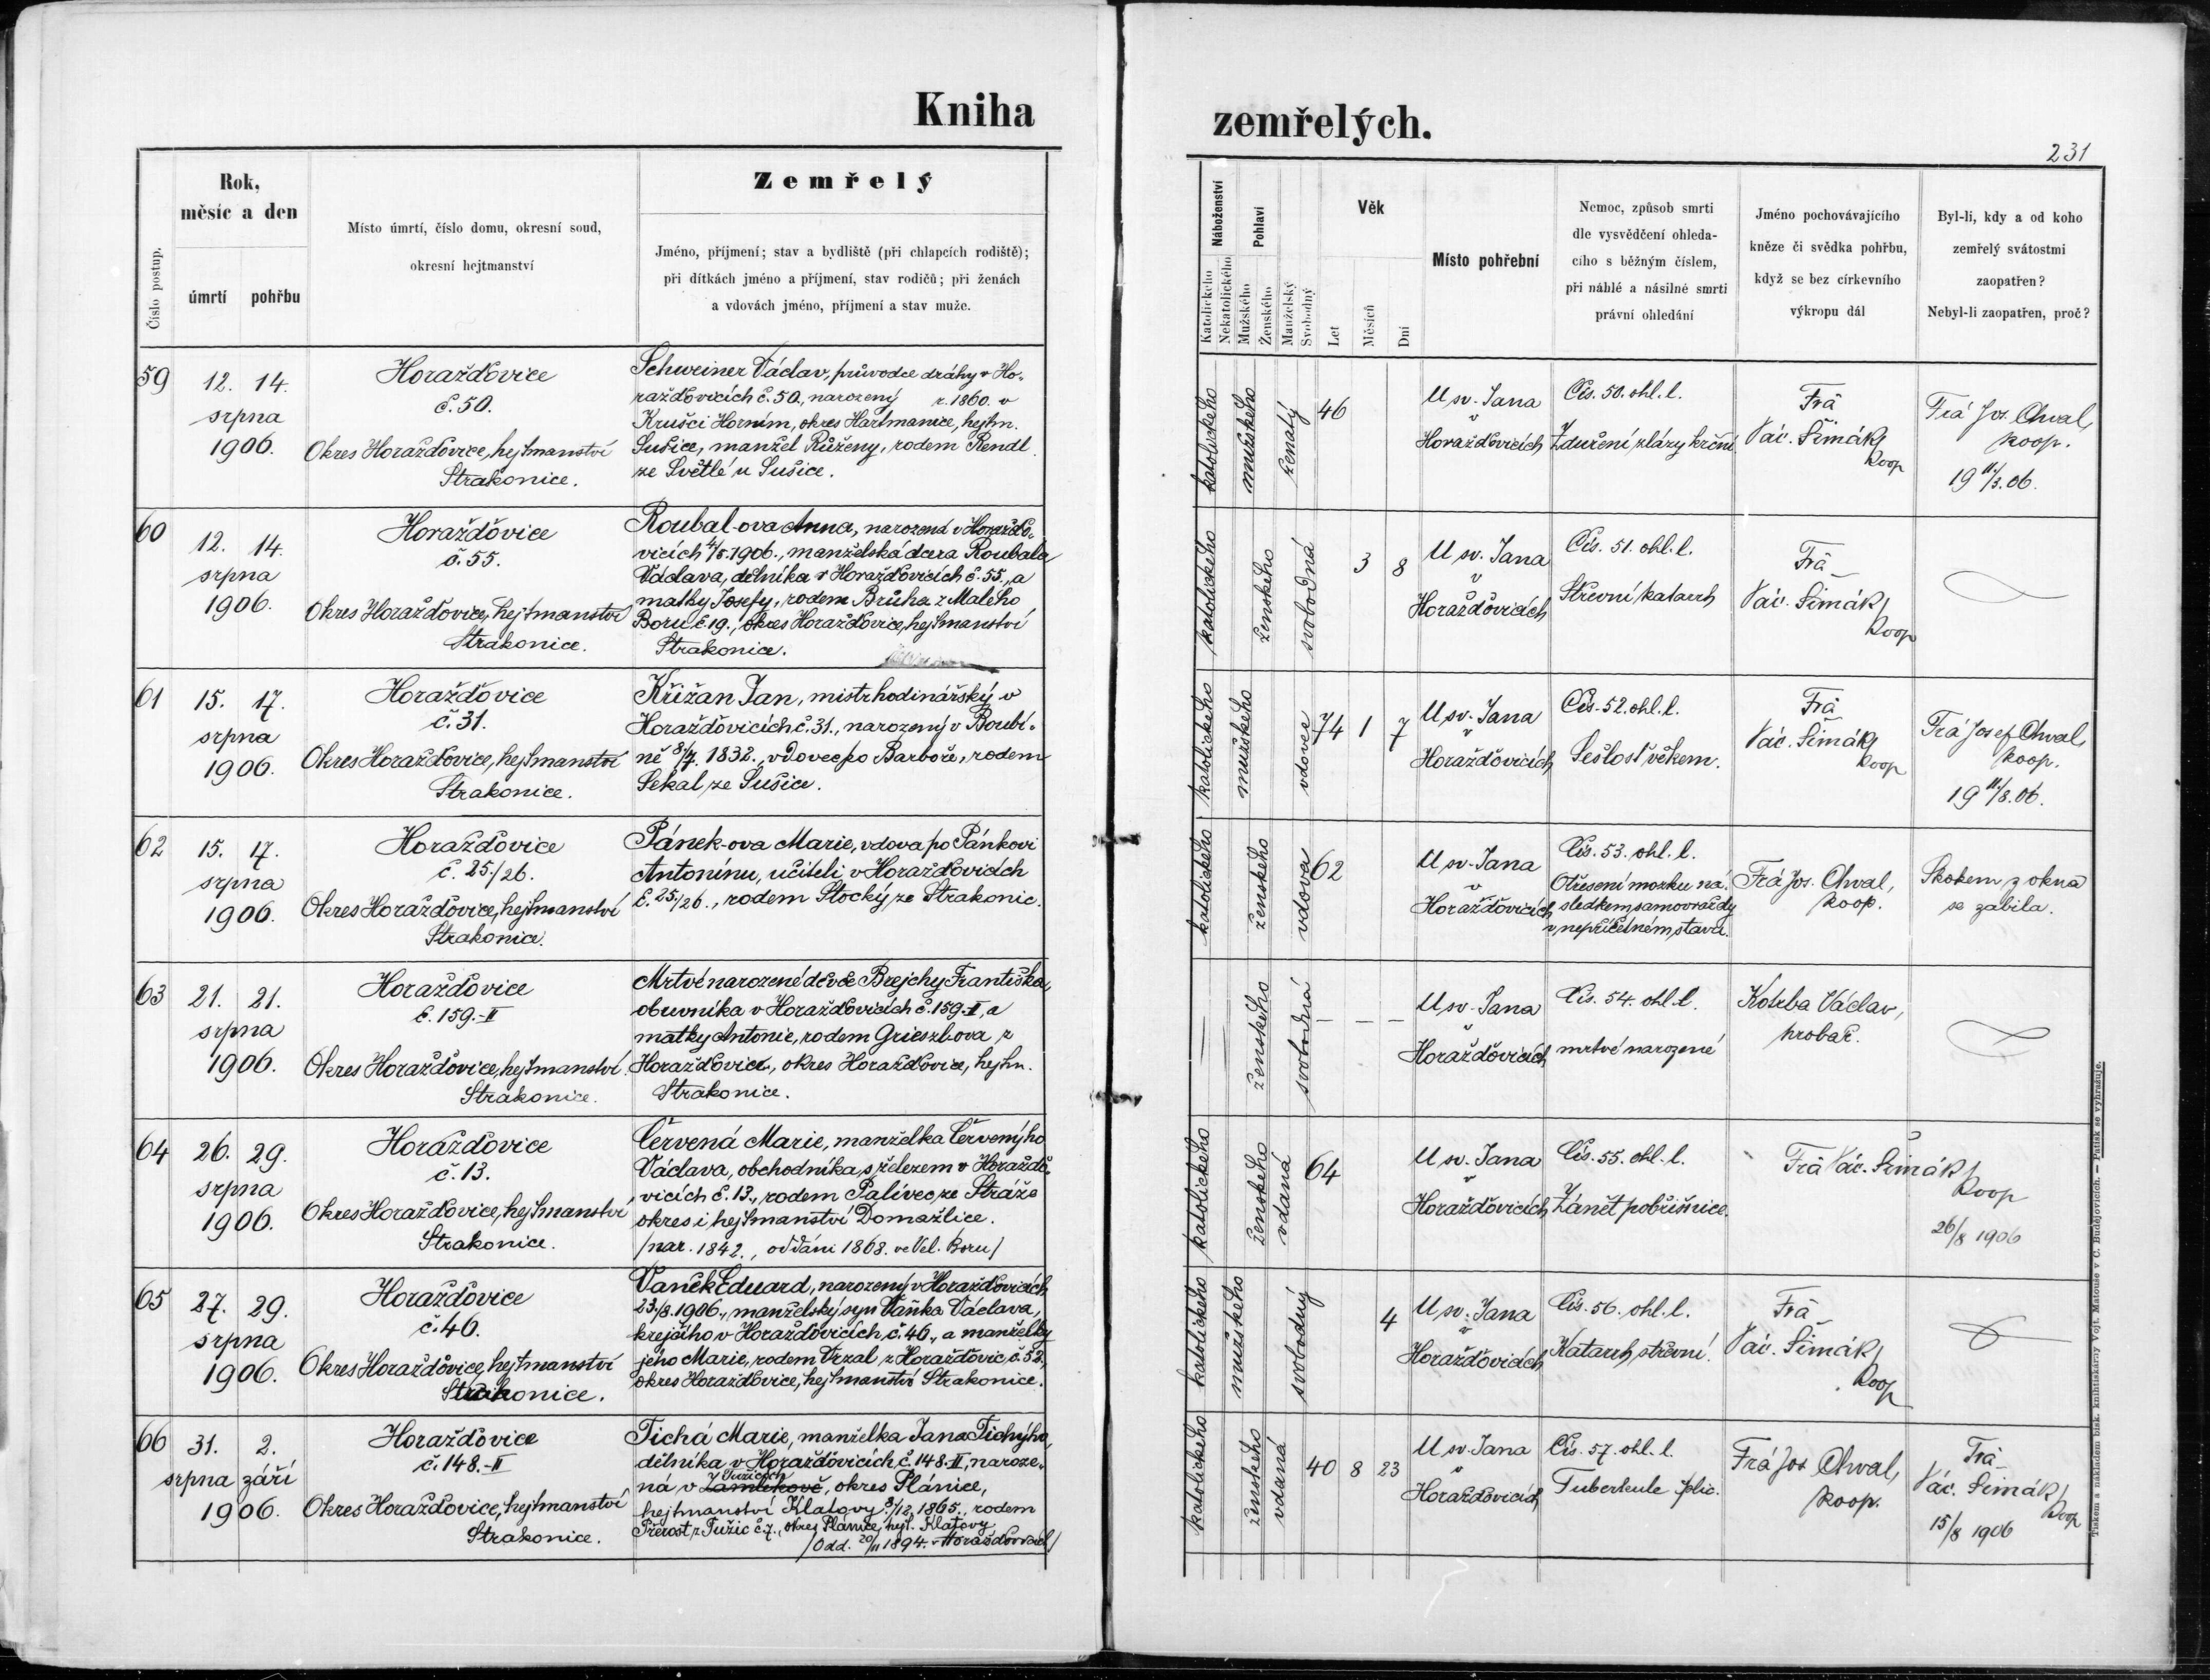 Kniha
zemřelých.
231
Číslo postup.
Rok,
měsíc a den
úmrtí pohřbu
Místo úmrtí, číslo domu, okresní soud,
okresní hejtmanství
Zemřelý
Jméno, příjmení; stav a bydliště (při chlapcích rodiště);
při dítkách jméno a příjmení, stav rodičů; při ženách
a vdovách jméno, příjmení a stav muže.
Náboženství
Katolického
Nekatolického
Pohlaví
Mužského
Ženského
Manželský
Svobodný
Věk
Let
Měsíců
Dní
Místo pohřební
Nemoc, způsob smrti
dle vysvědčení ohleda-
cího s běžným číslem,
při náhlé a násilné smrti
právní ohledání
Jméno pochovávajícího
kněze či svědka pohřbu,
když se bez církevního
výkropu dál
Byl-li, kdy a od koho
zemřelý svátostmi
zaopatřen?
Nebyl-li zaopatřen, proč?
59
12. 14.
srpna
1906.
Horažďovice
č. 50.
Okres Horažďovice, hejtmanství
Strakonice.
Schweiner Václav, průvodce dráhy v Ho-
ražďovicích č. 50., narozený r. 1860. v
Krušci Horním, okres Hartmanice, hejtm.
Sušice, manžel Růženy, rodem Rendl
ze Světlé u Sušice.
katolického
mužského
ženatý
46
U sv. Jana
v
Horažďovicích
Čís. 50. ohl. l.
Zduření žlázy krční
Frá
Vác. Šimák,
koop
Frá Jos. Chval,
koop.
19 11/8. 06.
60
12. 14.
srpna
1906.
Horažďovice
č. 55.
Okres Horažďovice, hejtmanství
Strakonice.
Roubal-ova Anna, narozená v Horažďo-
vicích 4/5. 1906., manželská dcera Roubala
Václava, dělníka v Horažďovicích č. 55., a
matky Josefy, rodem Brůha z Malého
Boru č. 19., okres Horažďovice, hejtmanství
Strakonice.
katolického
ženského
svobodná
3 8
U sv. Jana
v
Horažďovicích
Čís. 51. ohl. l.
Střevní katarrh
Frá
Vác. Šimák,
koop
61
15. 17.
srpna
1906.
Horažďovice
č. 31.
Okres Horažďovice, hejtmanství
Strakonice.
Křižan Jan, mistr hodinářský v
Horažďovicích č. 31., narozený v Boubí-
ně 8/7. 1832., vdovec po Barboře, rodem
Sekal ze Sušice.
katolického
mužského
vdovec
74 1 7
U sv. Jana
v
Horažďovicích
Čís. 52. ohl. l.
Sešlosť věkem.
Frá
Vác. Šimák,
koop
Frá Josef Chval,
koop.
19 11/8. 06.
62
15. 17.
srpna
1906.
Horažďovice
č. 25./26.
Okres Horažďovice, hejtmanství
Strakonice.
Pánek-ova Marie, vdova po Pánkovi
Antonínu, učiteli v Horažďovicích
č. 25./26., rodem Stocký ze Strakonic.
katolického
ženského
vdova
62
U sv. Jana
v
Horažďovicích
Čís. 53. ohl. l.
Otřesení mozku ná-
sledkem samovraždy
v nepříčetném stavu.
Frá Jos. Chval,
koop.
Skokem z okna
se zabila.
63
21. 21.
srpna
1906.
Horažďovice
č. 159.-II
Okres Horažďovice, hejtmanství
Strakonice.
Mrtvé narozené děvče Brejchy Františka,
obuvníka v Horažďovicích č. 159.-II, a
matky Antonie, rodem Grieszl-ova z
Horažďovic, okres Horažďovice, hejtm.
Strakonice.
—
ženského
svobodná
— — —
U sv. Jana
v
Horažďovicích
Čís. 54. ohl. l.
mrtvě narozené
Kotrba Václav,
hrobař.
64
26. 29.
srpna
1906.
Horažďovice
č. 13.
Okres Horažďovice, hejtmanství
Strakonice.
Červená Marie, manželka Červenýho
Václava, obchodníka s železem v Horažďo-
vicích č. 13., rodem Palivec ze Stráže
okres i hejtmanství Domažlice.
/nar. 1842., oddáni 1868. ve Vel. Boru/
katolického
ženského
vdaná
64
U sv. Jana
v
Horažďovicích
Čís. 55. ohl. l.
Zánět pobřišnice.
Frá Vác. Šimák,
koop
26/8 1906
65
27. 29.
srpna
1906.
Horažďovice
č. 46.
Okres Horažďovice, hejtmanství
Strakonice.
Vaněk Eduard, narozený v Horažďovicích
23./8. 1906., manželský syn Vaňka Václava,
krejčího v Horažďovicích č. 46., a manželky
jeho Marie, rodem Vrzal z Horažďovic č. 52,
okres Horažďovice, hejtmanství Strakonice.
katolického
mužského
svobodný
4
U sv. Jana
v
Horažďovicích
Čís. 56. ohl. l.
Katarrh střevní.
Frá
Vác. Šimák,
koop
66
31. 2.
srpna září
1906.
Horažďovice
č. 148.-II
Okres Horažďovice, hejtmanství
Strakonice.
Tichá Marie, manželka Jana Tichýho,
dělníka v Horažďovicích č. 148-II, naroze-
Tužicích
ná v Zámlekově, okres Plánice,
hejtmanství Klatovy 8/12. 1865., rodem
Přerost z Tužic č. 7., okres Plánice, hejt. Klatovy
/Odd. 20/11 1894. v Horažďovicích/
katolického
ženského
vdaná
40 8 23
U sv. Jana
v
Horažďovicích
Čís. 57. ohl. l.
Tuberkule plic.
Frá Jos Chval,
koop.
Frá
Vác. Šimák,
koop
15/8 1906
Tiskem a nákladem bisk. knihtiskárny Vojt. Matouše v Č. Budějovicích. — Patisk se vyhražuje.